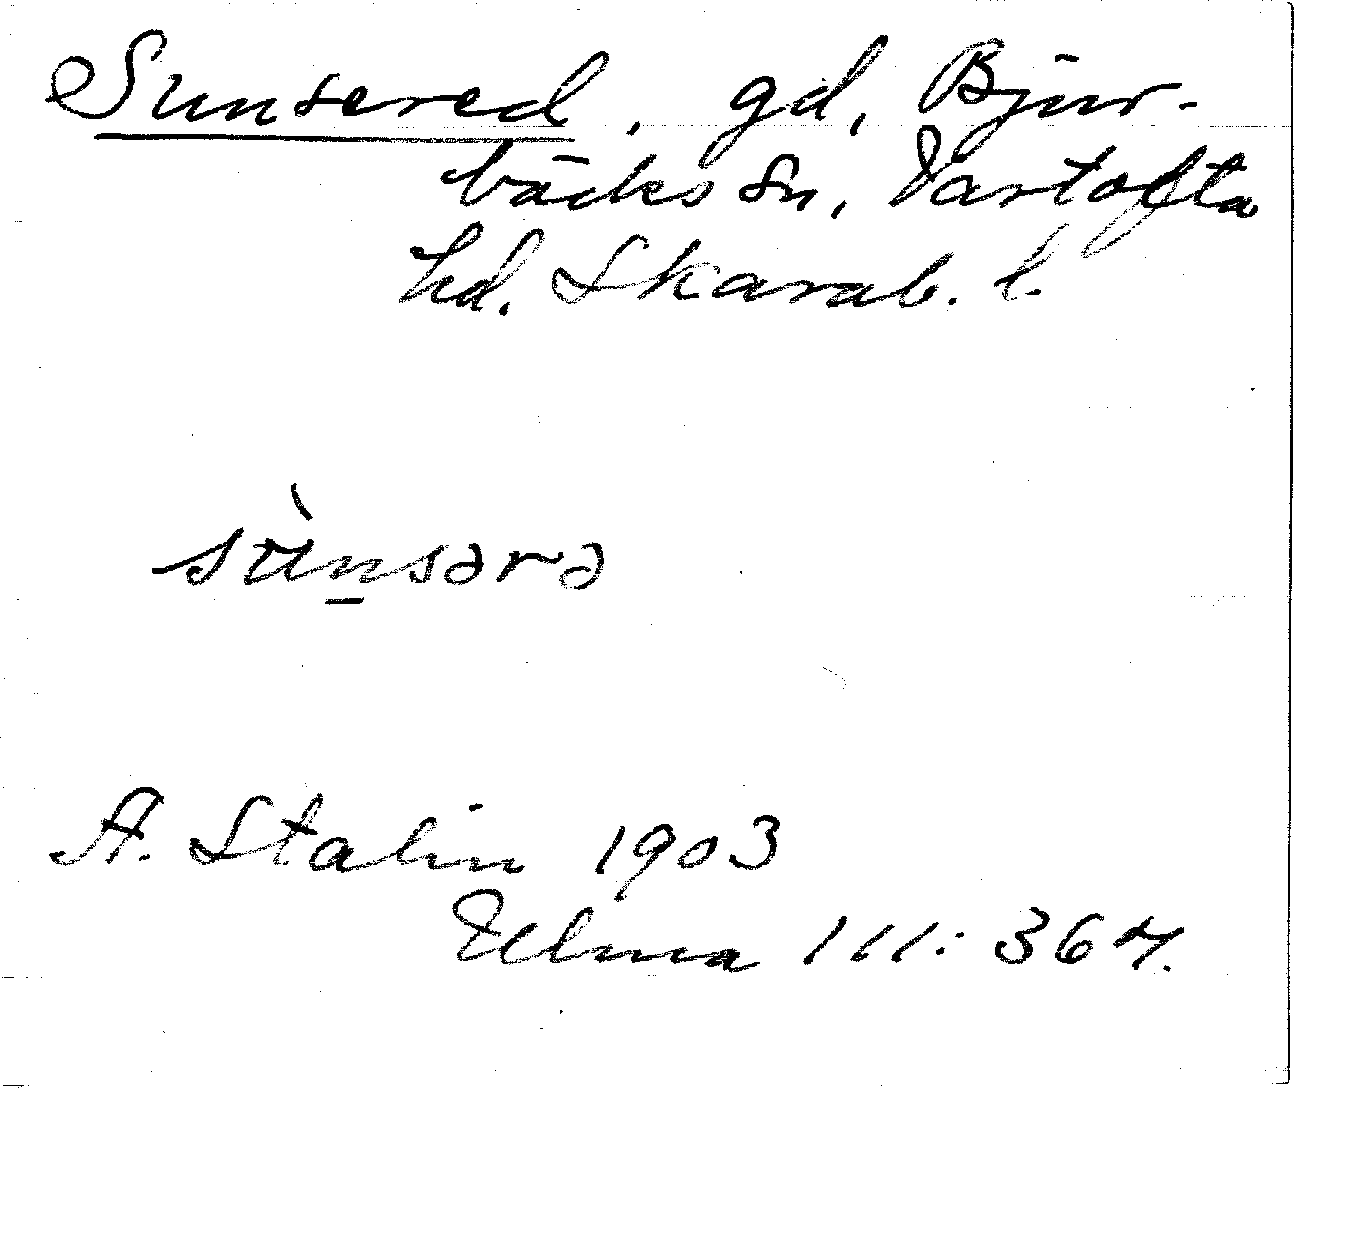 Sunsered, gd, Bjur-
bäcks sn, Vartofta
hd. Skarab. l.
sùn̲sərə
A. Stalin 1903
Ulma 111: 367.